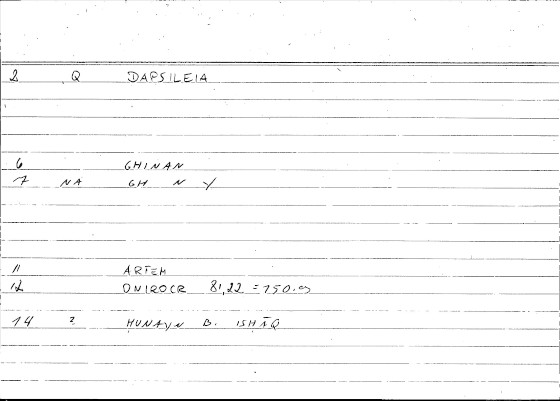 2 Q DAPSILEIA
6 GHINAN
7 NA GH N Y
11 ARTEM
12 ONIROCR 81,22 = 150.09
14 2 ḤUNAYN B. ISḤĀQ